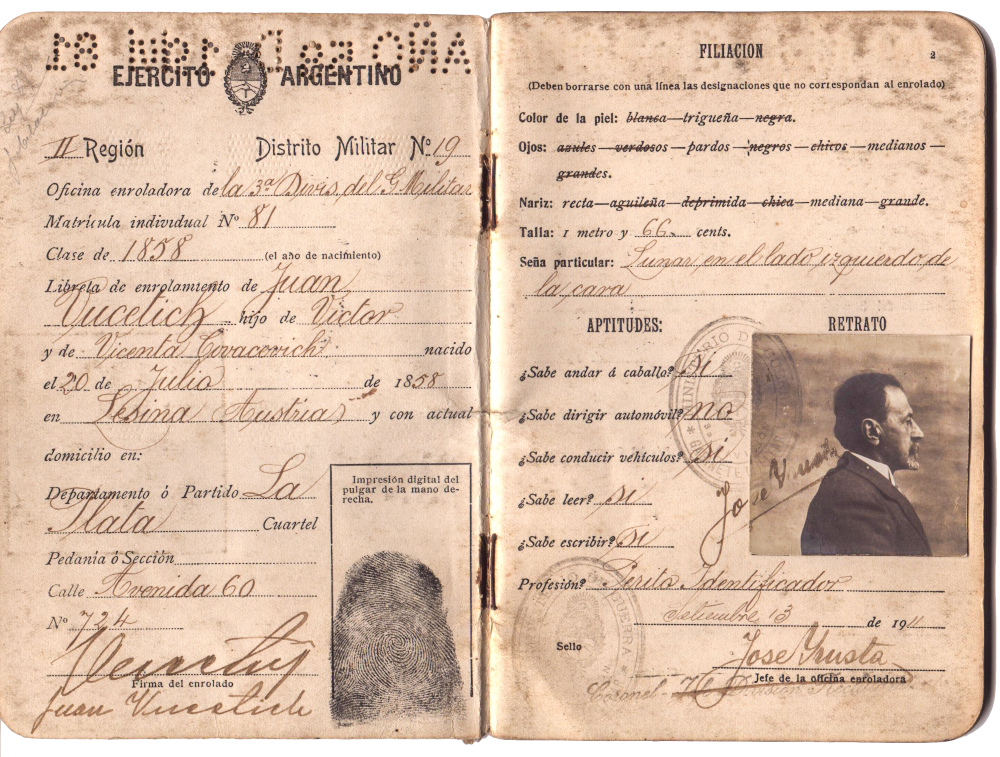 EJERCITO ARGENTINO
II Región Distrito Militar Nº 19
Oficina enroladora de la 3ª Divis. del G. Militar
Matrícula individual Nº 81
Clase de 1858 (el año de nacimiento)
Libreta de enrolamiento de Juan
Vucetich hijo de Victor
y de Vicenta Covacovich nacido
el 20 de Julio de 1858
en Lesina (Austria) y con actual
domicilio en:
Departamento ó Partido La
Plata Cuartel
Pedanía ó Sección
Calle Avenida 60
Nº 724
Firma del enrolado
Juan Vucetich
Impresión digital del
pulgar de la mano de-
recha.
FILIACION 2
(Deben borrarse con una línea las designaciones que no correspondan al enrolado)
Color de la piel: blanca—trigueña—negra.
Ojos: azules—verdosos—pardos—negros—chicos—medianos—
grandes.
Nariz: recta—aguileña—deprimida—chica—mediana—grande.
Talla: 1 metro y 66 cents.
Seña particular: Lunar en el lado izquierdo de
la cara
APTITUDES: RETRATO
¿Sabe andar á caballo? Si
¿Sabe dirigir automóvil? no
¿Sabe conducir vehículos? si
¿Sabe leer? si
¿Sabe escribir? Si
Profesión? Perito Identificador
Setiembre 13 de 1911
Sello
Jefe de la oficina enroladora
Coronel